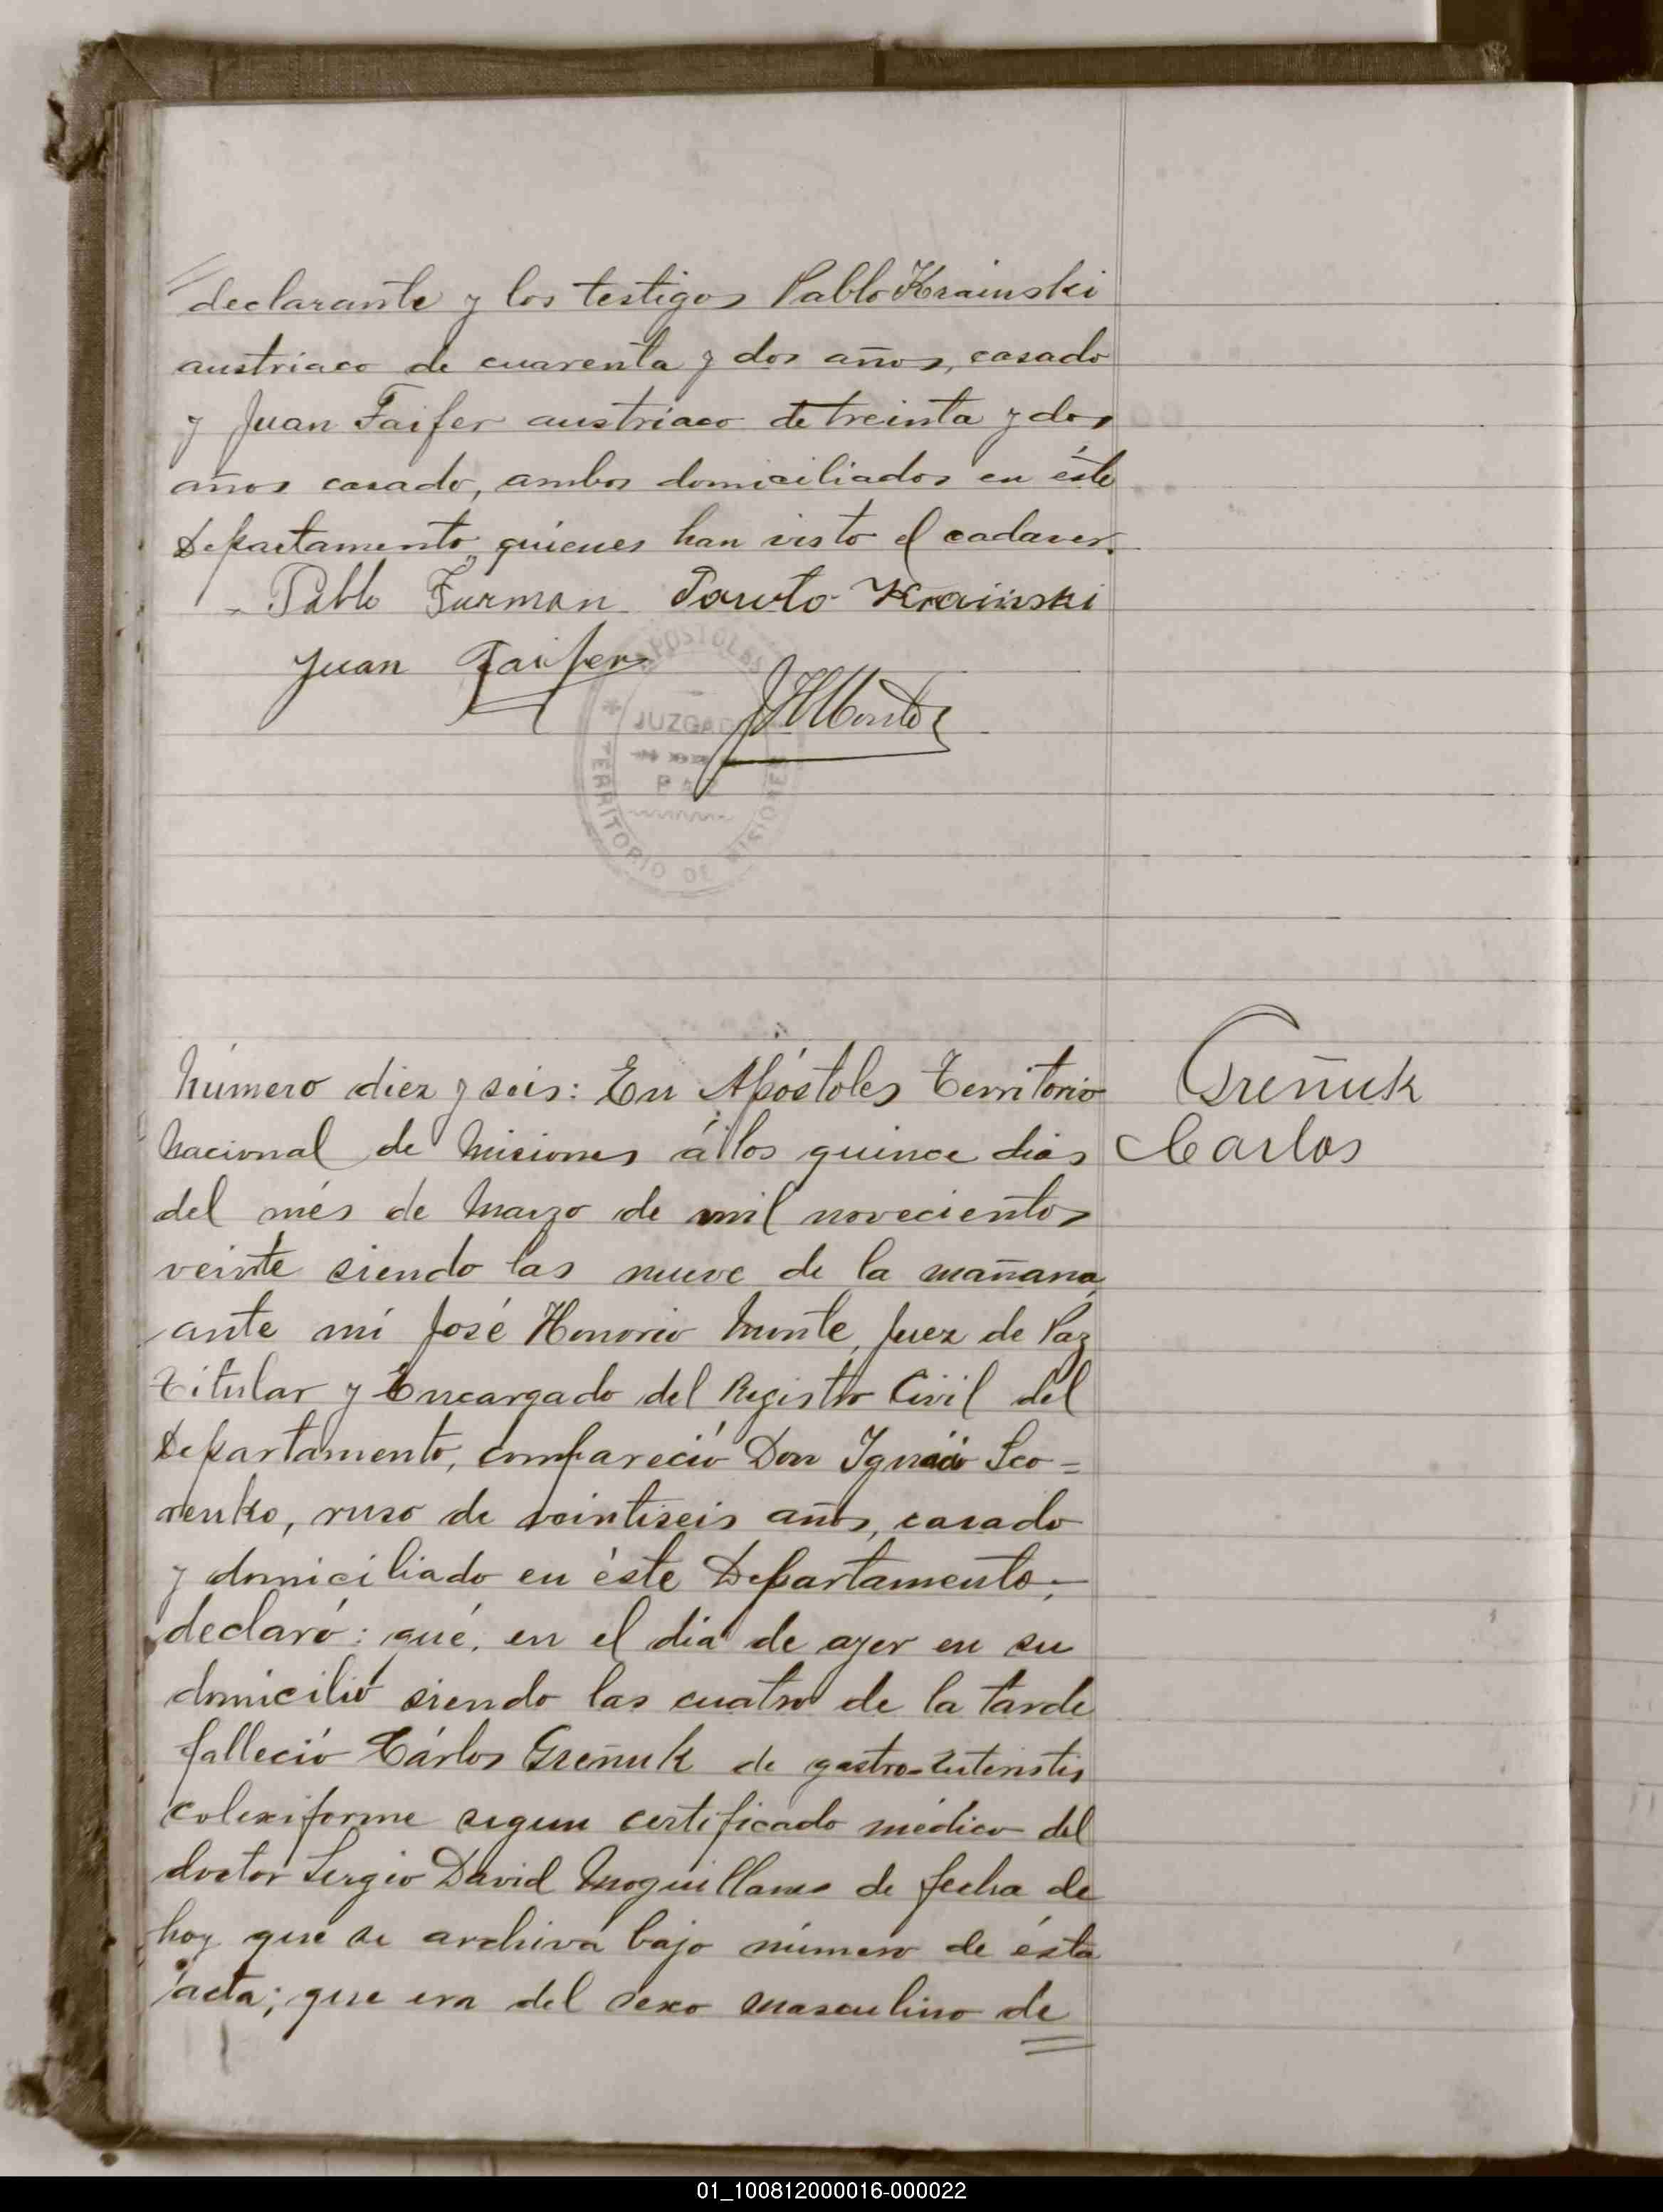 declarante y los testigos Pablo Krainski
austriaco de cuarenta y dos años, casado
y Juan Faifer austriaco de treinta y dos
años casado, ambos domiciliados en éste
Departamento, quienes han visto el cadaver.
Pablo Furman Pawlo Krainski
Juan Faifer
APOSTOLES
JUZGADO
PAZ
TERRITORIO DE MISIONES
JHMonte
Número diez y seis: En Apóstoles Territorio
Greñuk
Nacional de Misiones á los quince dias
Carlos
del més de Marzo de mil novecientos
veinte siendo las nueve de la mañana,
ante mi José Honorio Monte, Juez de Paz
Titular y Encargado del Registro Civil del
Departamento, compareció Don Ignacio Sco=
renko, ruso de veintiseis años, casado
y domiciliado en éste Departamento,
declaró: qué, en el dia de ayer en su
domicilio siendo las cuatro de la tarde
falleció Cárlos Greñuk de gastro-enteristis
colexiforme segun certificado médico del
doctor Sergio David Moguillanes de fecha de
hoy que se archiva bajo número de ésta
acta; que era del sexo masculino de
01_100812000016-000022